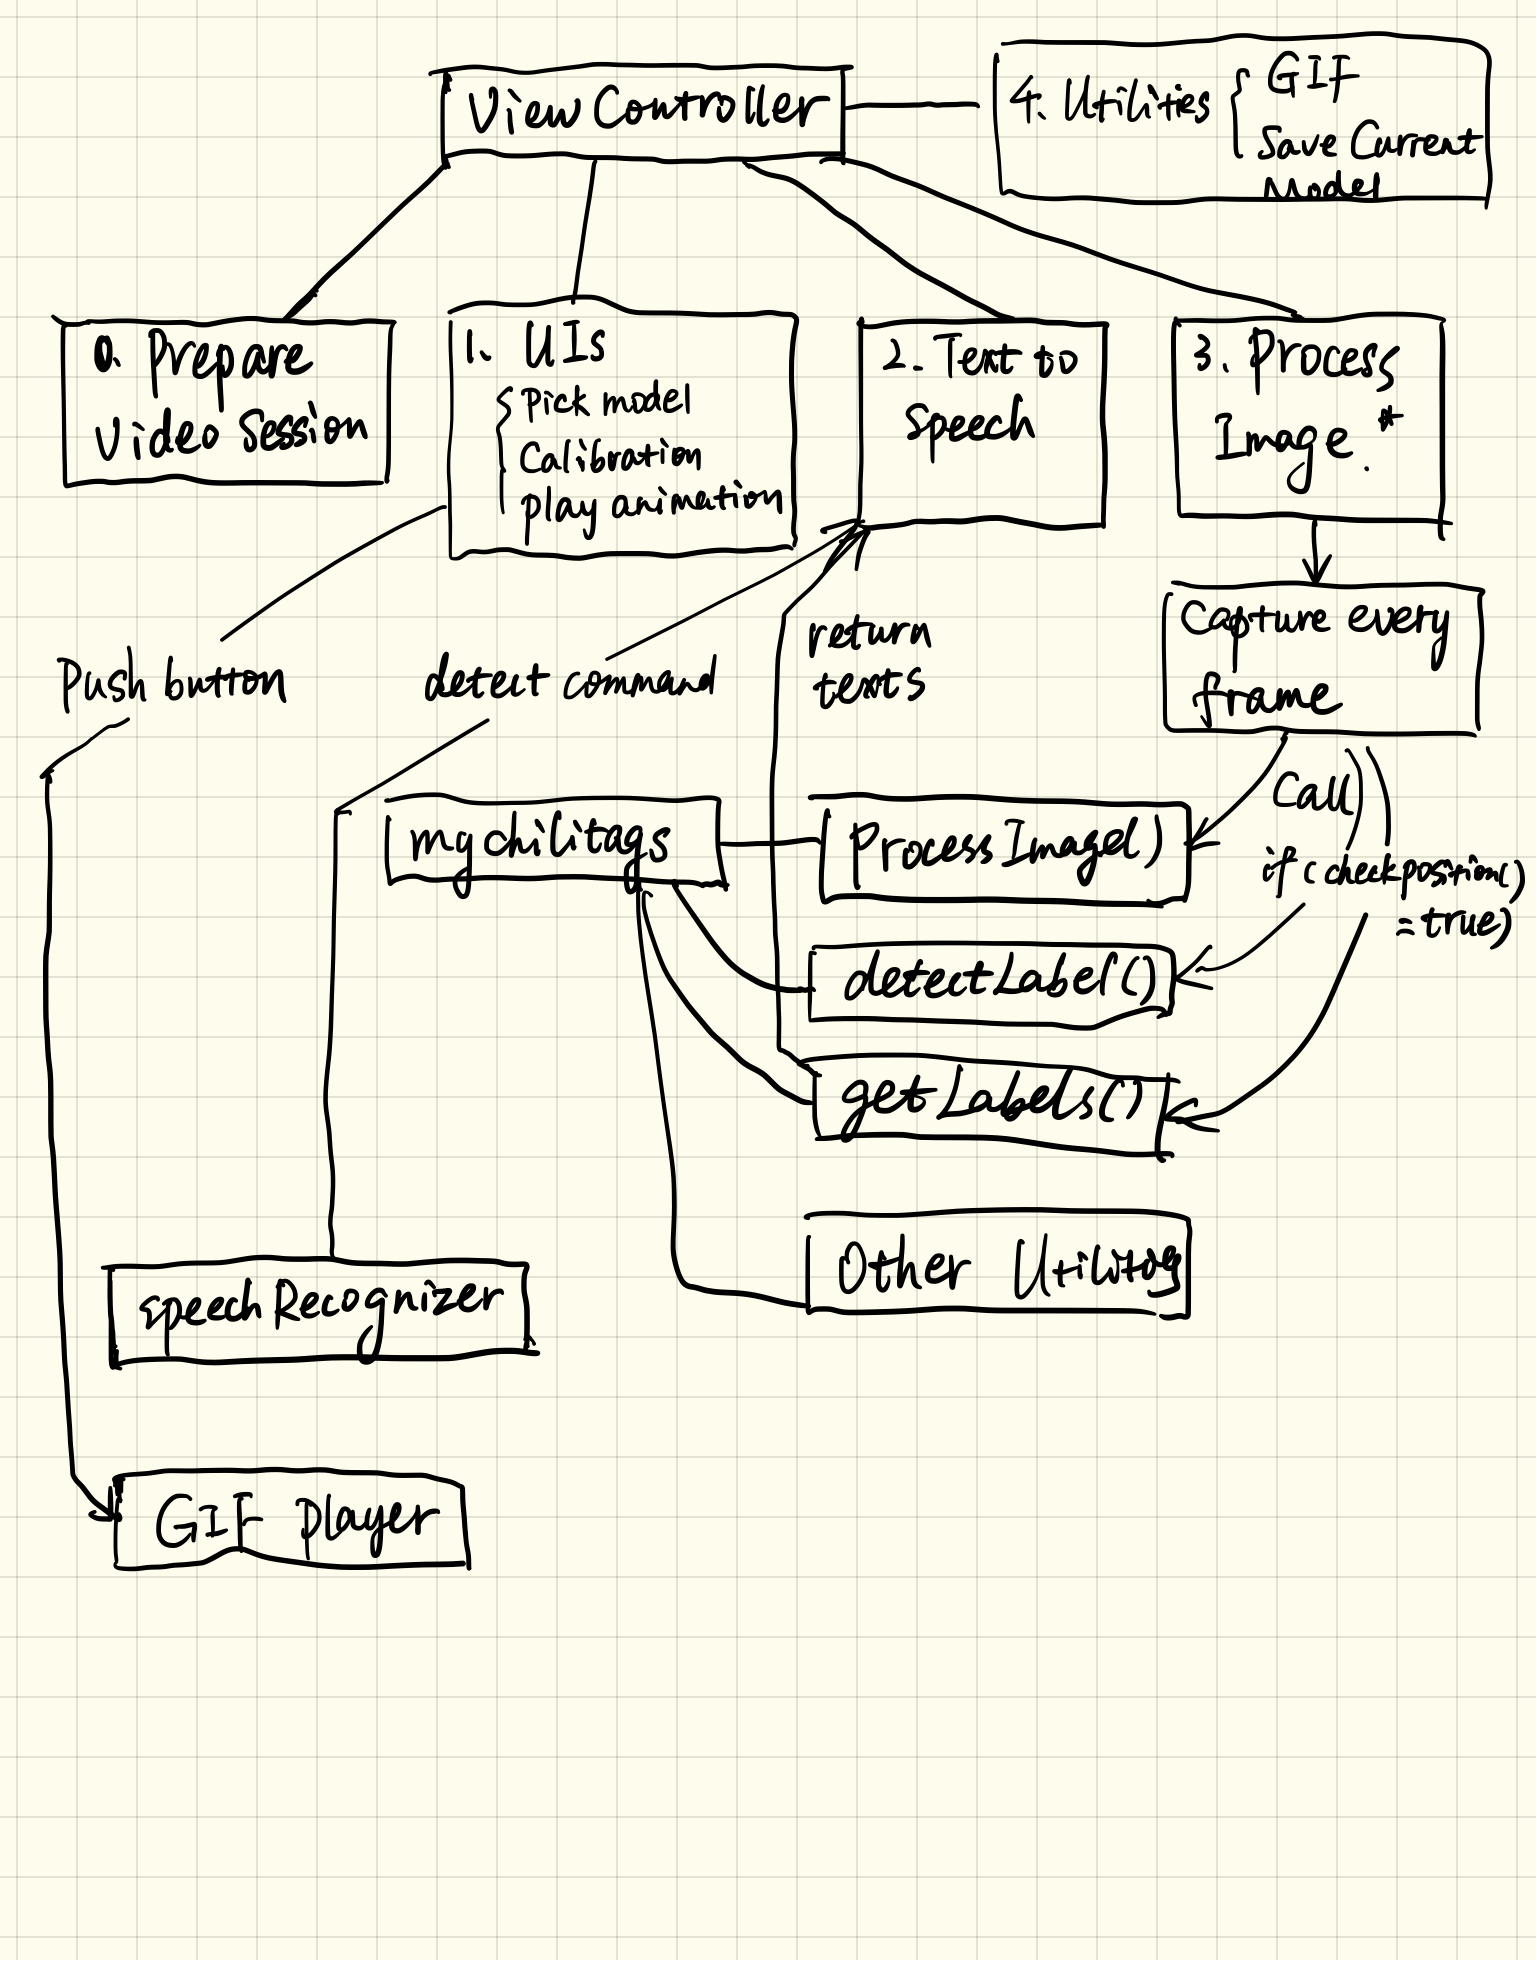 View Controller
4. Utilities
GIF
Save Current
Model
0. Prepare
Video Session
1. UIs
Pick model
Calibration
Play animation
2. Text to
Speech
3. Process
Image *
Capture every
frame
Push button
detect command
return
texts
Call
if (checkposition()
= true)
mychilitags
ProcessImage()
detectLabel()
getLabels()
Other
speechRecognizer
GIF player